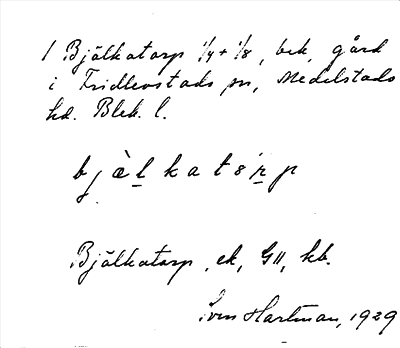 1 Bjälkatorp 1/4 + 1/8, bek, gård
i Fridlevstads sn, Medelstads
hd. Blek. l.
b j è l k a t ó r p
Bjälkatorp, ek, GII, kb.
Sven Hartman, 1929